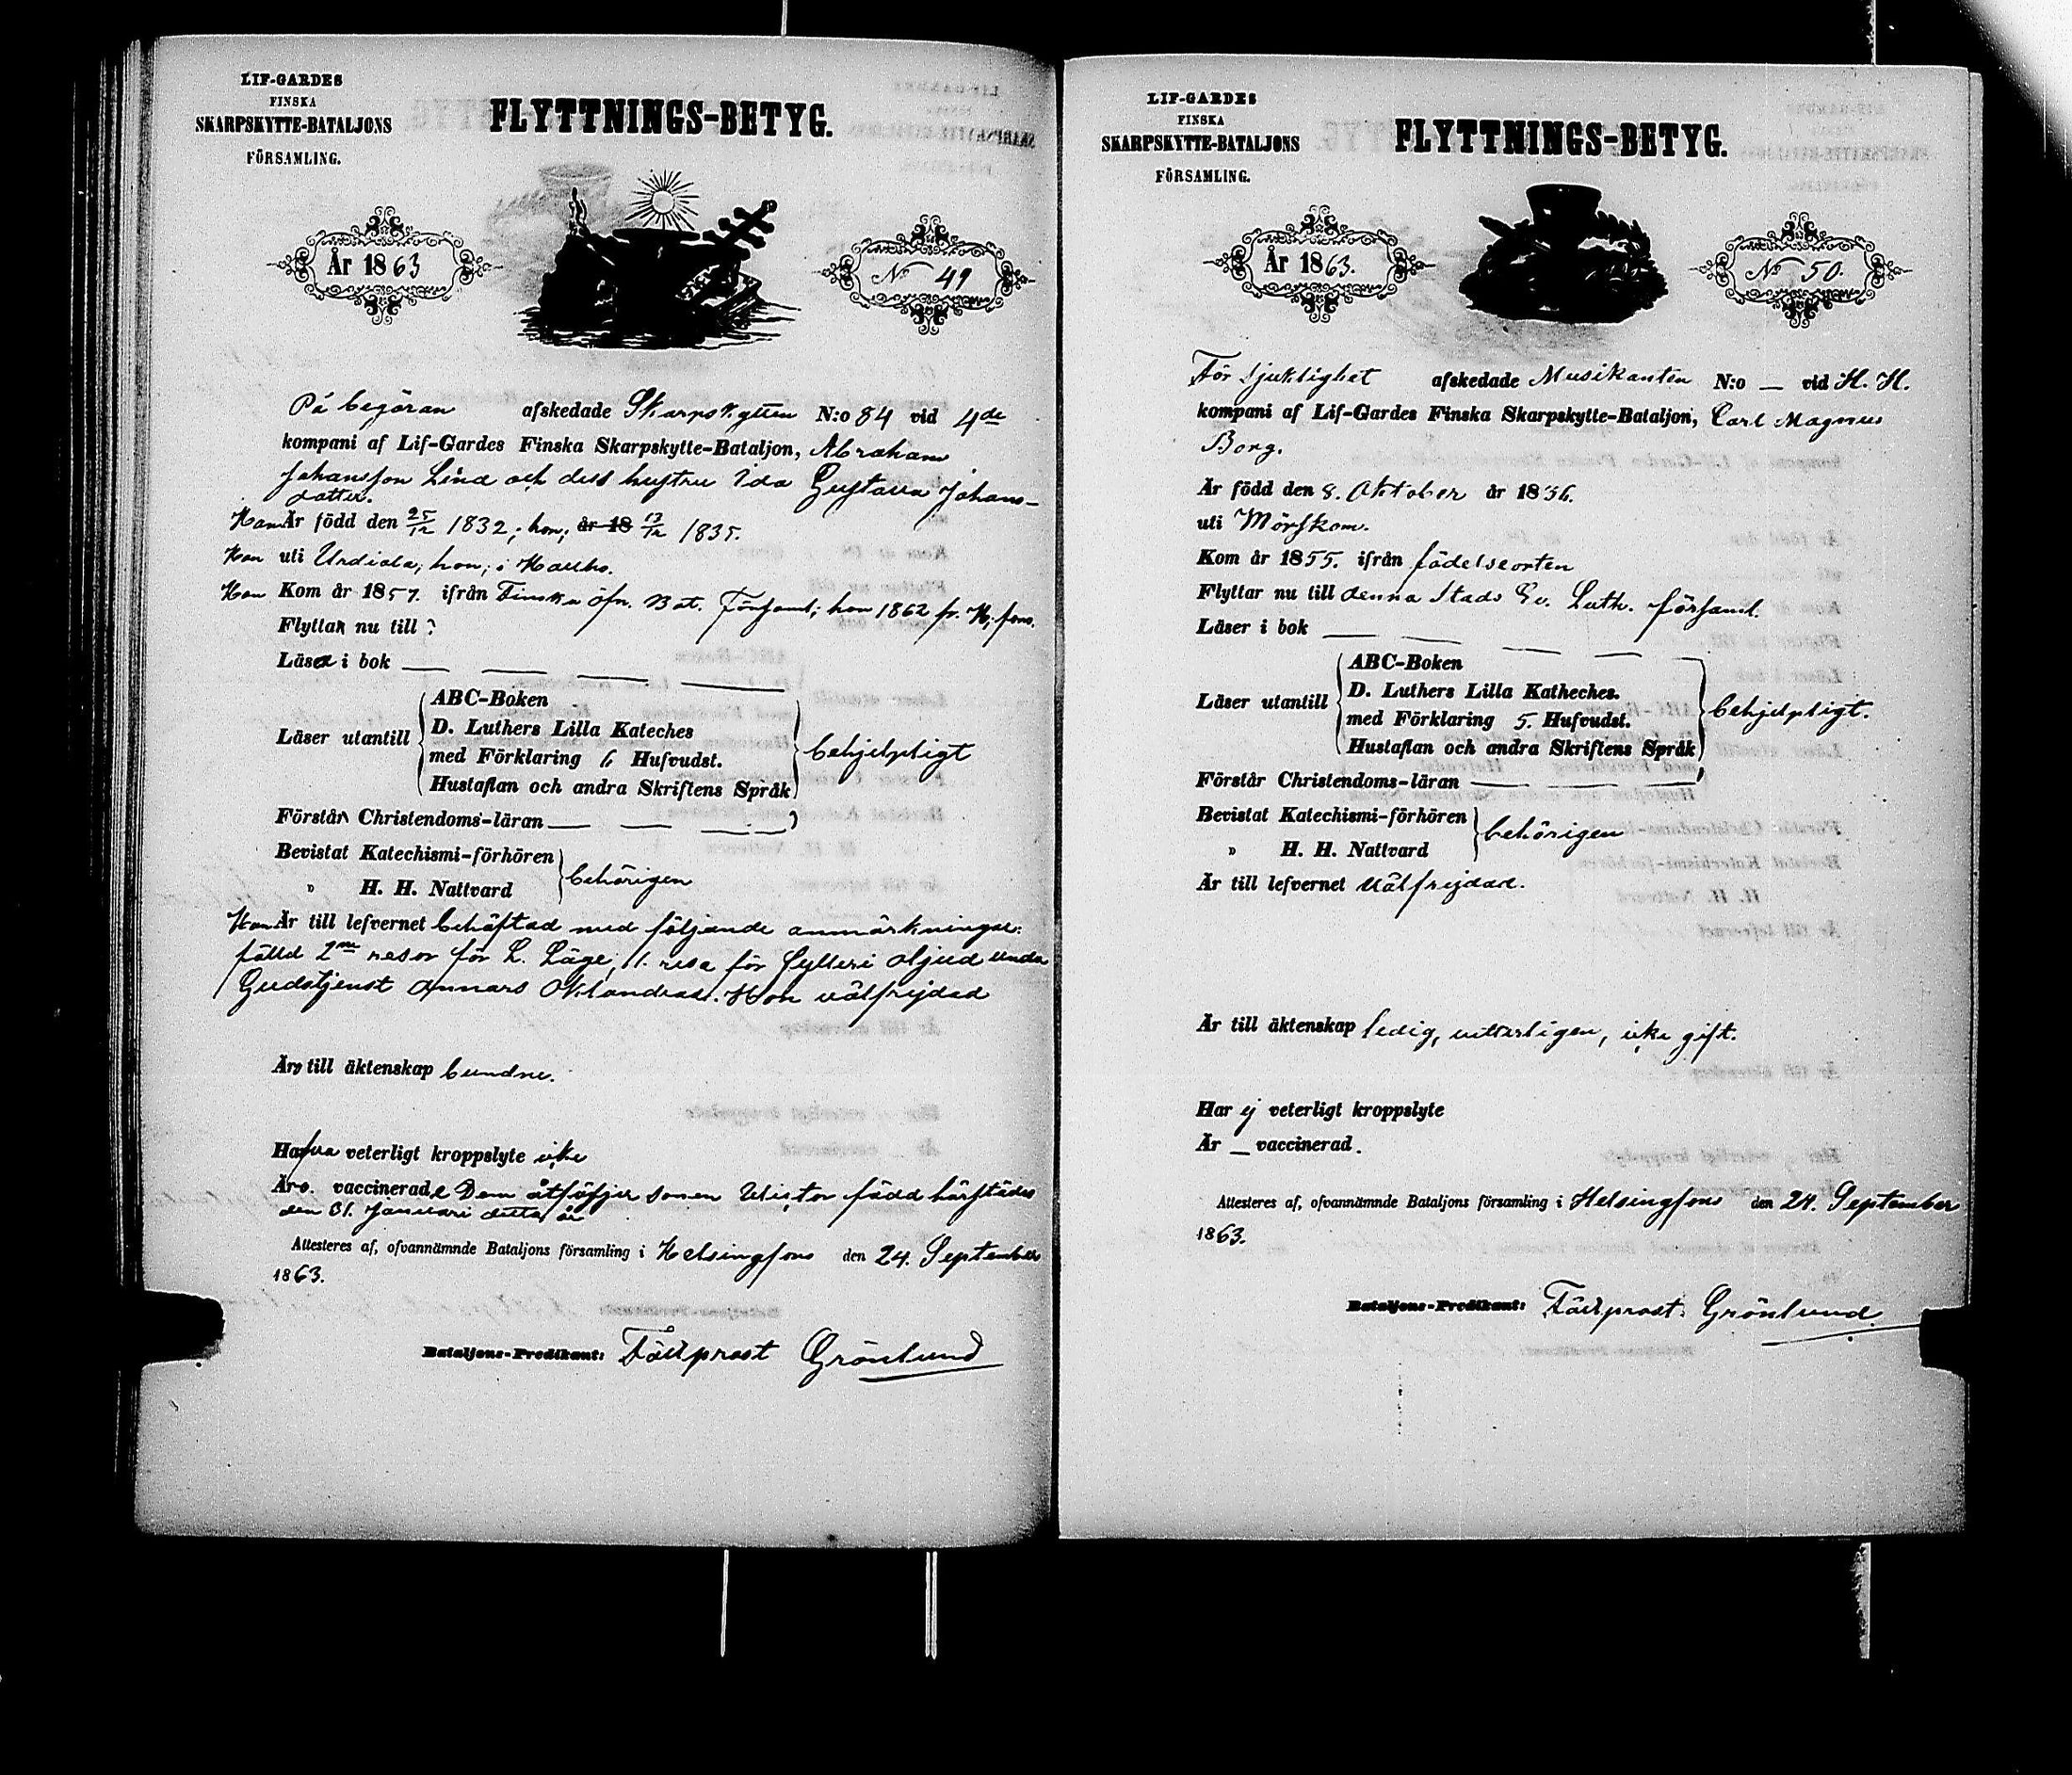 LIF-GARDES
FINSKA
SKARPSKYTTE-BATALJONS
FÖRSAMLING.
FLYTTNINGS-BETYG.
År 1863
No 49
På begäran afskedade Skarpskytten N:o 84 vid 4de
kompani af Lif-Gardes Finska Skarpskytte-Bataljon, Abraham
Johansson Lind och dess hustru Ida Gustava Johans-
dotter.
Han Är född den 25/12 1832; hon; år 18 13/12 1835.
Han uti Urdiala; hon; i Hauho.
Han Kom år 1857. ifrån Finska öfn. Bat. Församl; hon 1862 fr. H;fors.
Flyttar nu till ?
Läsa i bok — — — —
Läser utantill
ABC-Boken
D. Luthers Lilla Kateches
med Förklaring 6 Hufvudst.
Hustaflan och andra Skriftens Språk
behjelpligt
Förstår Christendoms-läran — — —
Bevistat Katechismi-förhören
" H. H. Nattvard
behörigen
Han Är till lefvernet behäftad med följande anmärkningar:
fälld 2ne resor för L. Läge, 1. resa för fylleri oljud under
Gudstjenst annars oklandrad. Hon välfrejdad
Äro till äktenskap bundne.
Hafva veterligt kroppslyte icke
Äro. vaccinerade Dem åtföljer sonen Victor född härstädes
den 31. Januari detta år
Attesteres af, ofvannämnde Bataljons församling i Helsingfors den 24. September
1863.
Bataljons-Predikant: Fältprost Grönlund
LIF-GARDES
FINSKA
SKARPSKYTTE-BATALJONS
FÖRSAMLING.
FLYTTNINGS-BETYG.
År 1863.
No 50.
För sjuklighet afskedade Musikanten N:o — vid H. H.
kompani af Lif-Gardes Finska Skarpskytte-Bataljon, Carl Magnus
Borg.
Är född den 8. Oktober år 1836.
uti Mörskom.
Kom år 1855. ifrån födelseorten
Flyttar nu till denna Stads Ev. Luth. församl.
Läser i bok — — — —
Läser utantill
ABC-Boken
D. Luthers Lilla Katheches.
med Förklaring 5. Hufvudst.
Hustaflan och andra Skriftens Språk
behjelpligt.
Förstår Christendoms-läran — — —
Bevistat Katechismi-förhören
" H. H. Nattvard
behörigen
Är till lefvernet välfrejdad.
Är till äktenskap ledig, vitterligen, icke gift.
Har ej veterligt kroppslyte
Är — vaccinerad.
Attesteres af, ofvannämnde Bataljons församling i Helsingfors den 24. September
1863.
Bataljons-Predikant: Fältprost Grönlund